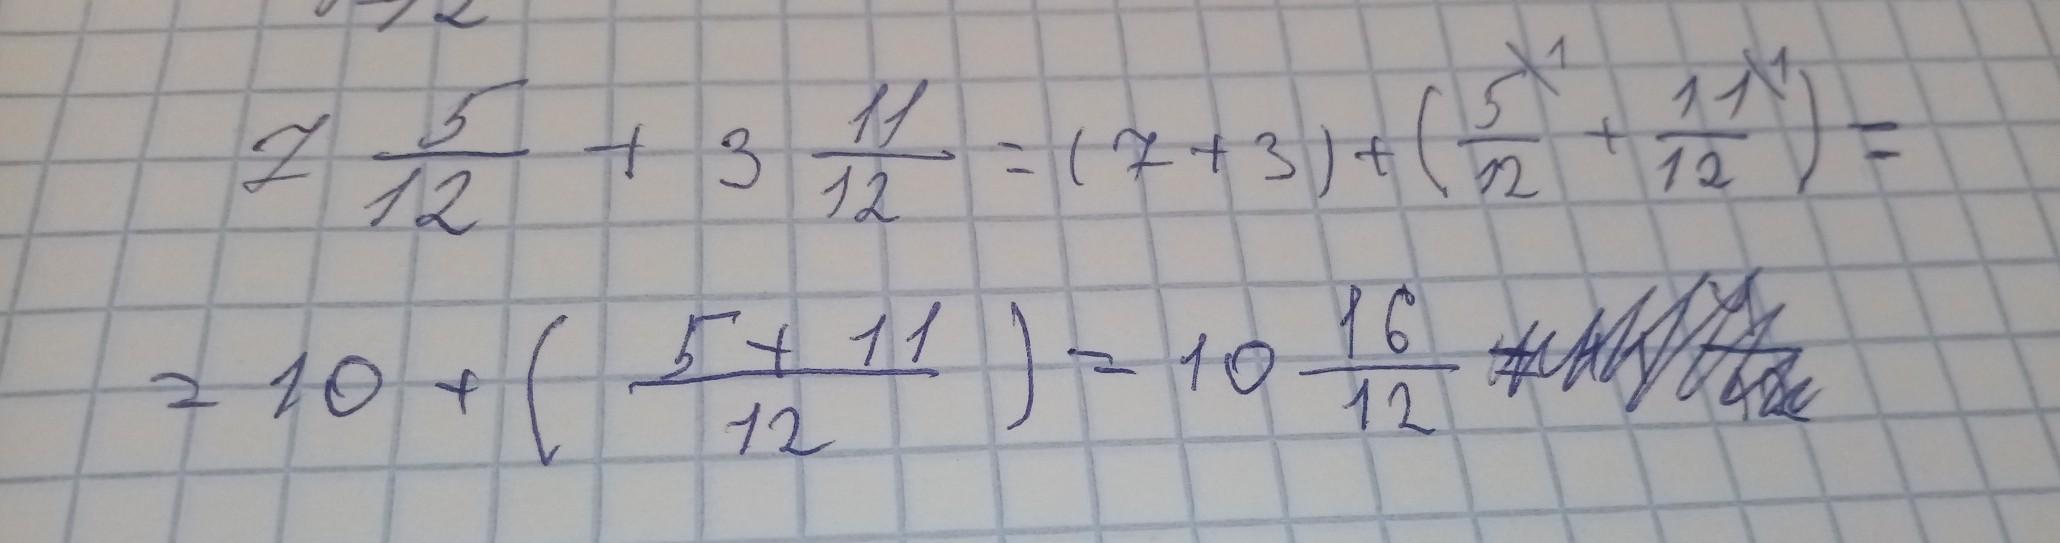 2
7 5/12 + 3 11/12 = (7 + 3) + (5\1/12 + 11\1/12) =
= 10 + (5 + 11/12) = 10 16/12